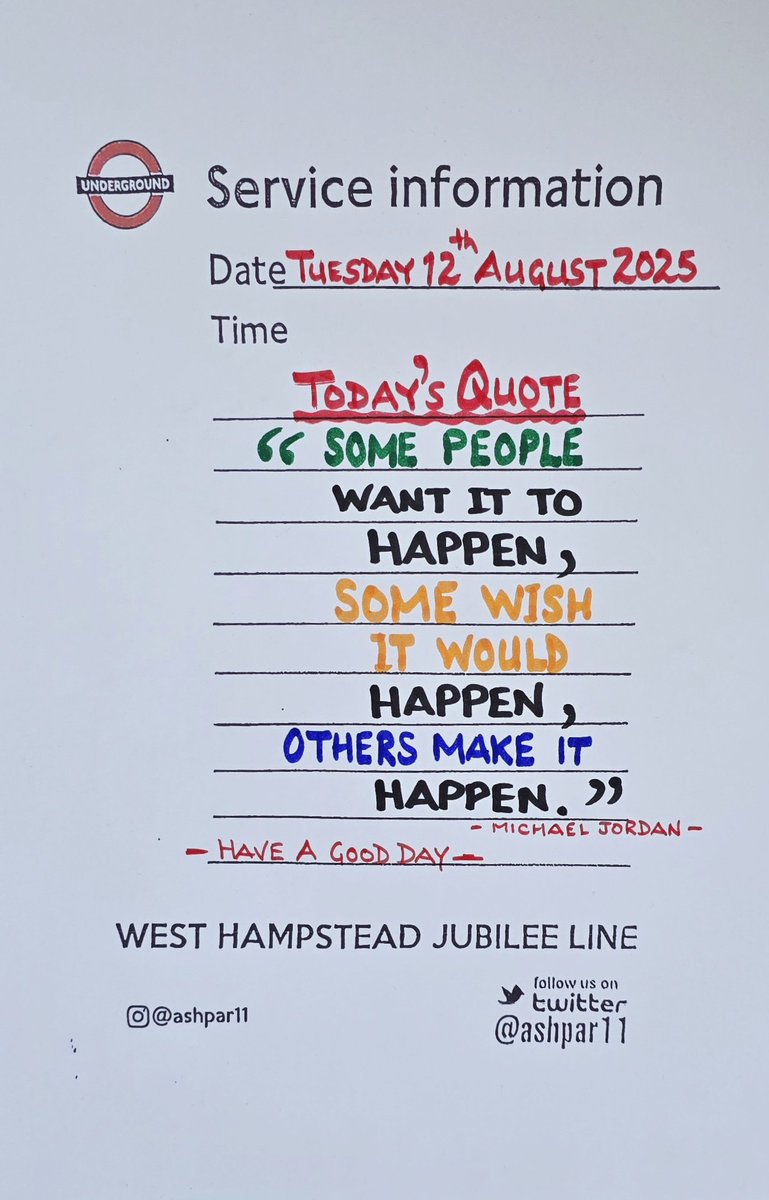 UNDERGROUND
Service information
Date TUESDAY 12th AUGUST 2025
Time
TODAY'S QUOTE
“ SOME PEOPLE
WANT IT TO
HAPPEN,
SOME WISH
IT WOULD
HAPPEN,
OTHERS MAKE IT
HAPPEN.”
- MICHAEL JORDAN -
- HAVE A GOOD DAY -
WEST HAMPSTEAD JUBILEE LINE
@ashpar11
follow us on
twitter
@ashpar11